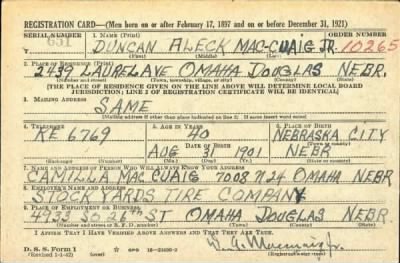 REGISTRATION CARD—(Men born on or after February 17, 1897 and on or before December 31, 1921)
SERIAL NUMBER 1. NAME (Print) ORDER NUMBER
651 DUNCAN ALECK MAC-CUAIG JR. 10265
(First) (Middle) (Last)
2. PLACE OF RESIDENCE (Print)
2439 LAUREL AVE OMAHA DOUGLAS NEBR.
(Number and street) (Town, township, village, or city) (County) (State)
[THE PLACE OF RESIDENCE GIVEN ON THE LINE ABOVE WILL DETERMINE LOCAL BOARD
JURISDICTION; LINE 2 OF REGISTRATION CERTIFICATE WILL BE IDENTICAL]
3. MAILING ADDRESS
SAME
[Mailing address if other than place indicated on line 2. If same insert word same]
4. TELEPHONE 5. AGE IN YEARS 6. PLACE OF BIRTH
KE 6769 40 NEBRASKA CITY
DATE OF BIRTH (Town or county)
AUG 31 1901 NEBR
(Exchange) (Number) (Mo.) (Day) (Yr.) (State or country)
7. NAME AND ADDRESS OF PERSON WHO WILL ALWAYS KNOW YOUR ADDRESS
CAMILLA MAC CUAIG 7008 N 24 OMAHA NEBR
8. EMPLOYER'S NAME AND ADDRESS
STOCK YARDS TIRE COMPANY
9. PLACE OF EMPLOYMENT OR BUSINESS
4933 SO 26TH ST OMAHA DOUGLAS NEBR
(Number and street or R. F. D. number) (Town) (County) (State)
I AFFIRM THAT I HAVE VERIFIED ABOVE ANSWERS AND THAT THEY ARE TRUE.
D. S. S. Form 1
(Revised 1-1-42) (over)